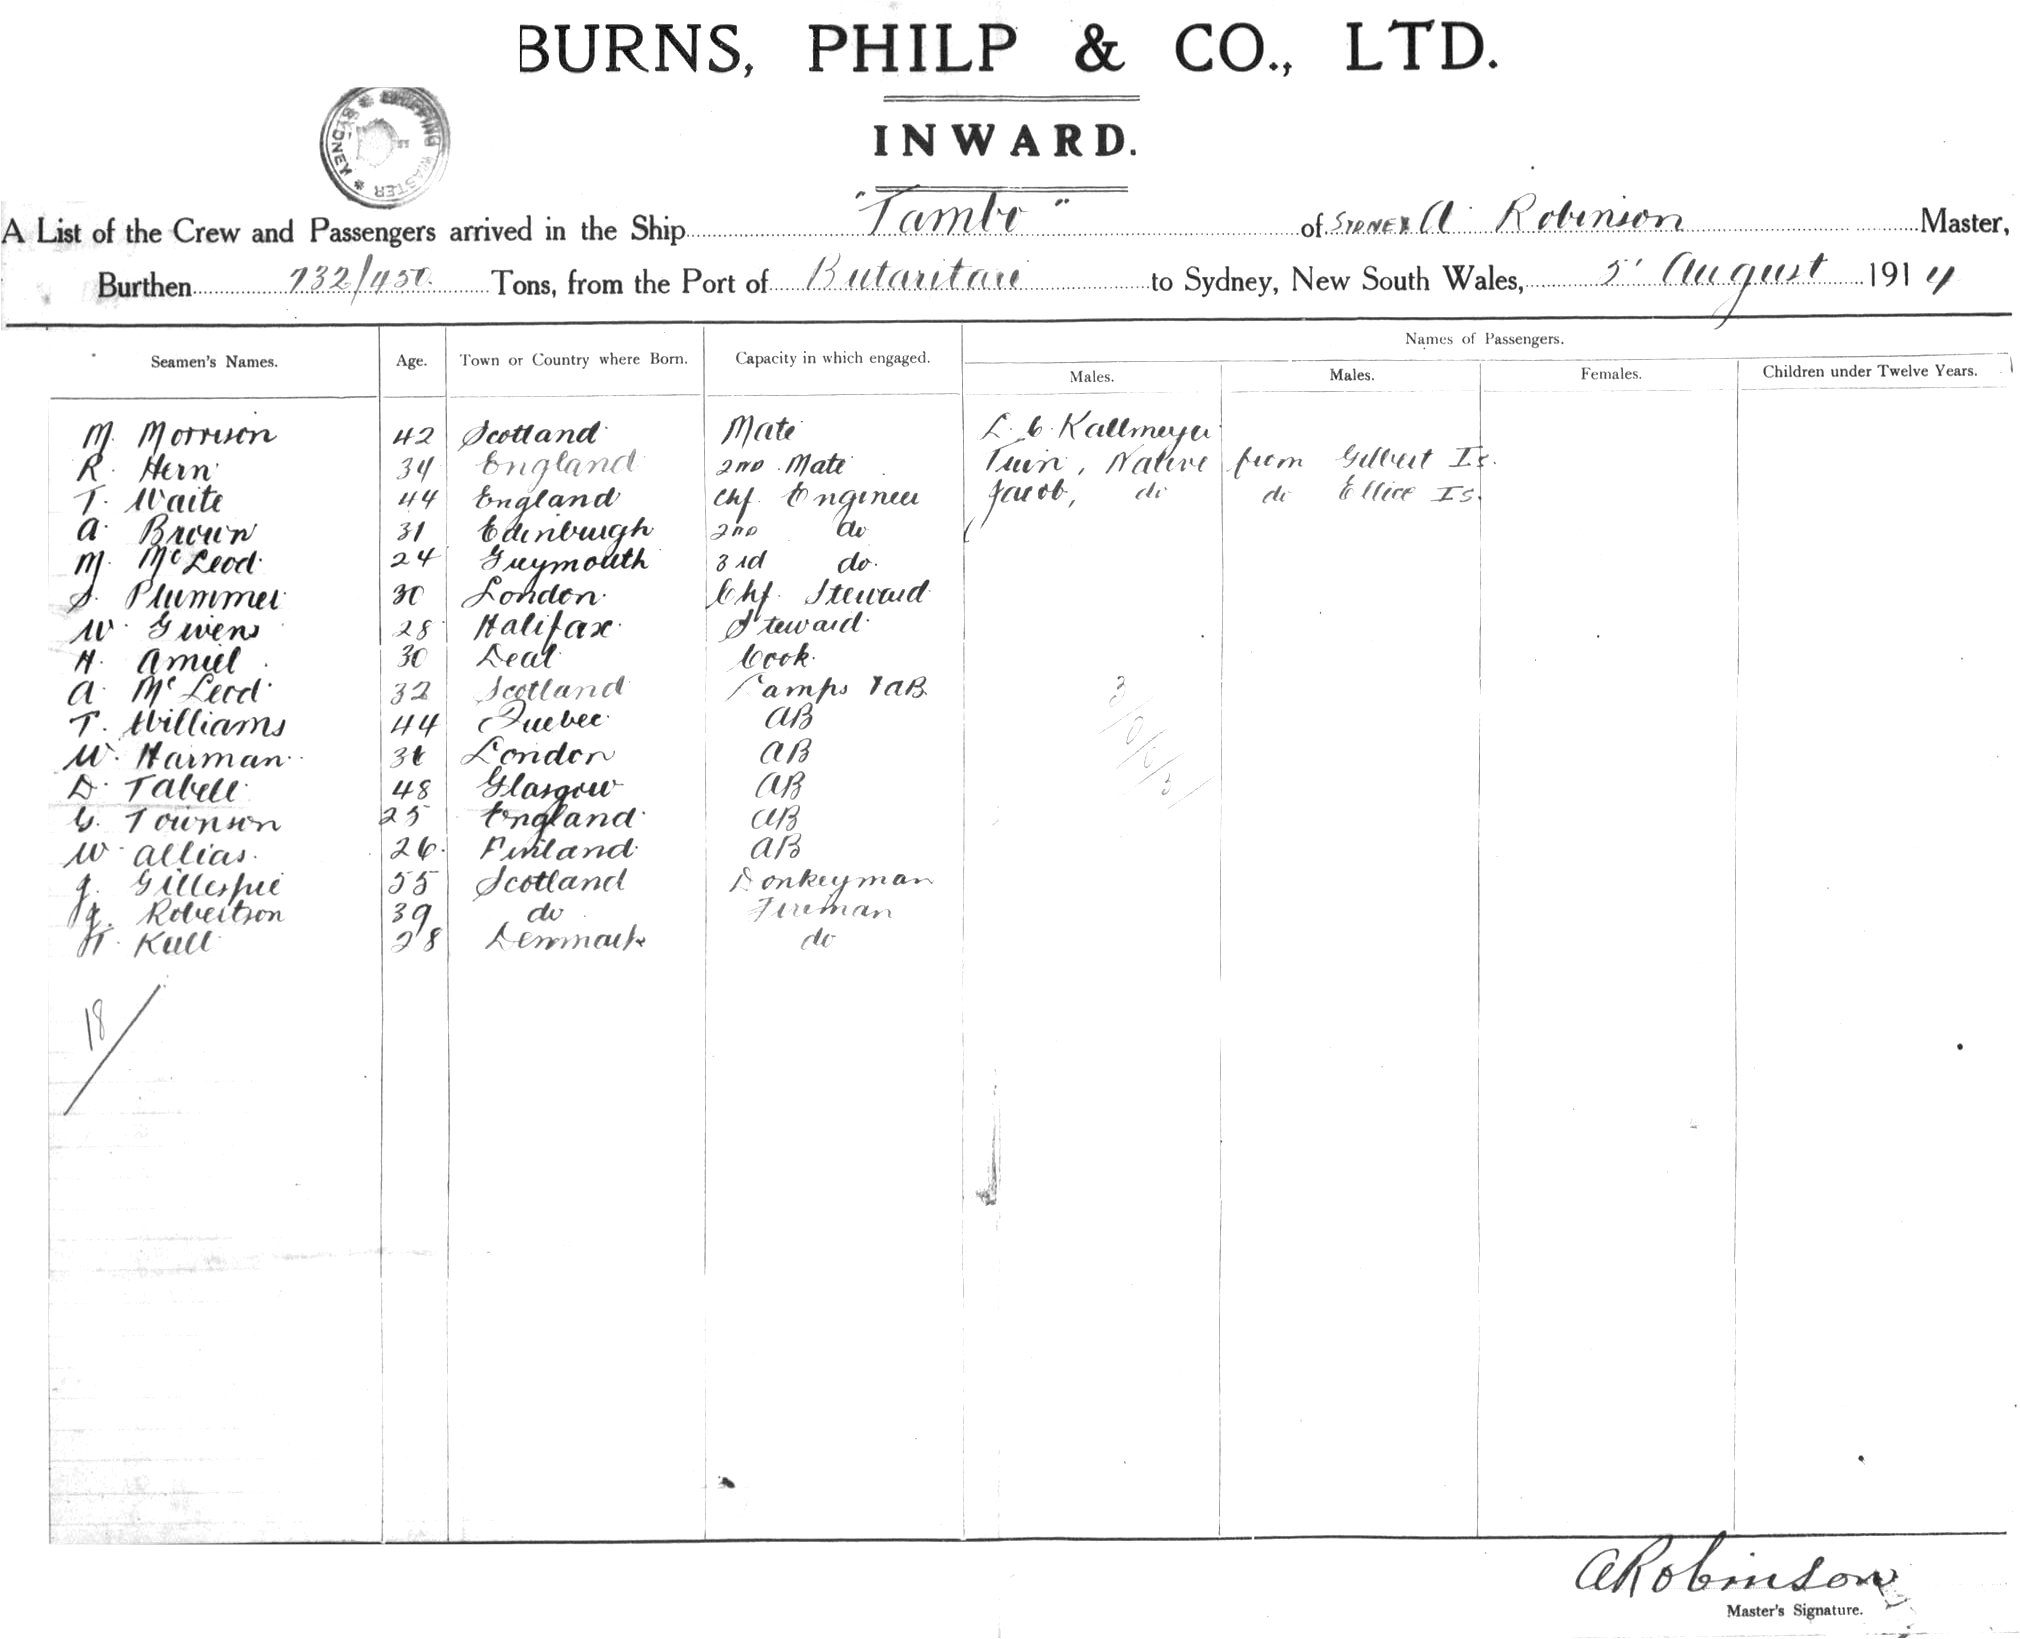 BURNS, PHILP & CO., LTD.
INWARD.
SYDNEY SHIPPING MASTER
A List of the Crew and Passengers arrived in the Ship "Tambo" of SYDNEY A. Robinson Master,
Burthen 732/450 Tons, from the Port of Butaritari to Sydney, New South Wales, 5' August 1914
Names of Passengers.
Seamen's Names. Age. Town or Country where Born. Capacity in which engaged. Males. Males. Females. Children under Twelve Years.
M. Morrison 42 Scotland Mate L. C. Kallmeyer
R. Hern 34 England 2nd Mate Native from Gilbert Is.
T. Waite 44 England Chf. Engineer Jacob, do do Ellice Is.
A. Brown 31 Edinburgh 2nd do
M. McLeod 24 Greymouth 3rd do.
S. Plummer 30 London Chf. Steward
W. Givens 28 Halifax Steward
H. Amiel 30 Deal Cook.
A. McLeod 32 Scotland Lamps & AB
T. Williams 44 Quebec AB
W. Harman London AB
D. Tabell 48 Glasgow AB
G. Townson 25 England AB
W. Allias. 26 Finland AB
J. Gillespie 55 Scotland Donkeyman
J. Robertson 39 do Fireman
H. Kull 28 Denmark do
18
3/0/0/3/
ARobinson
Master's Signature.